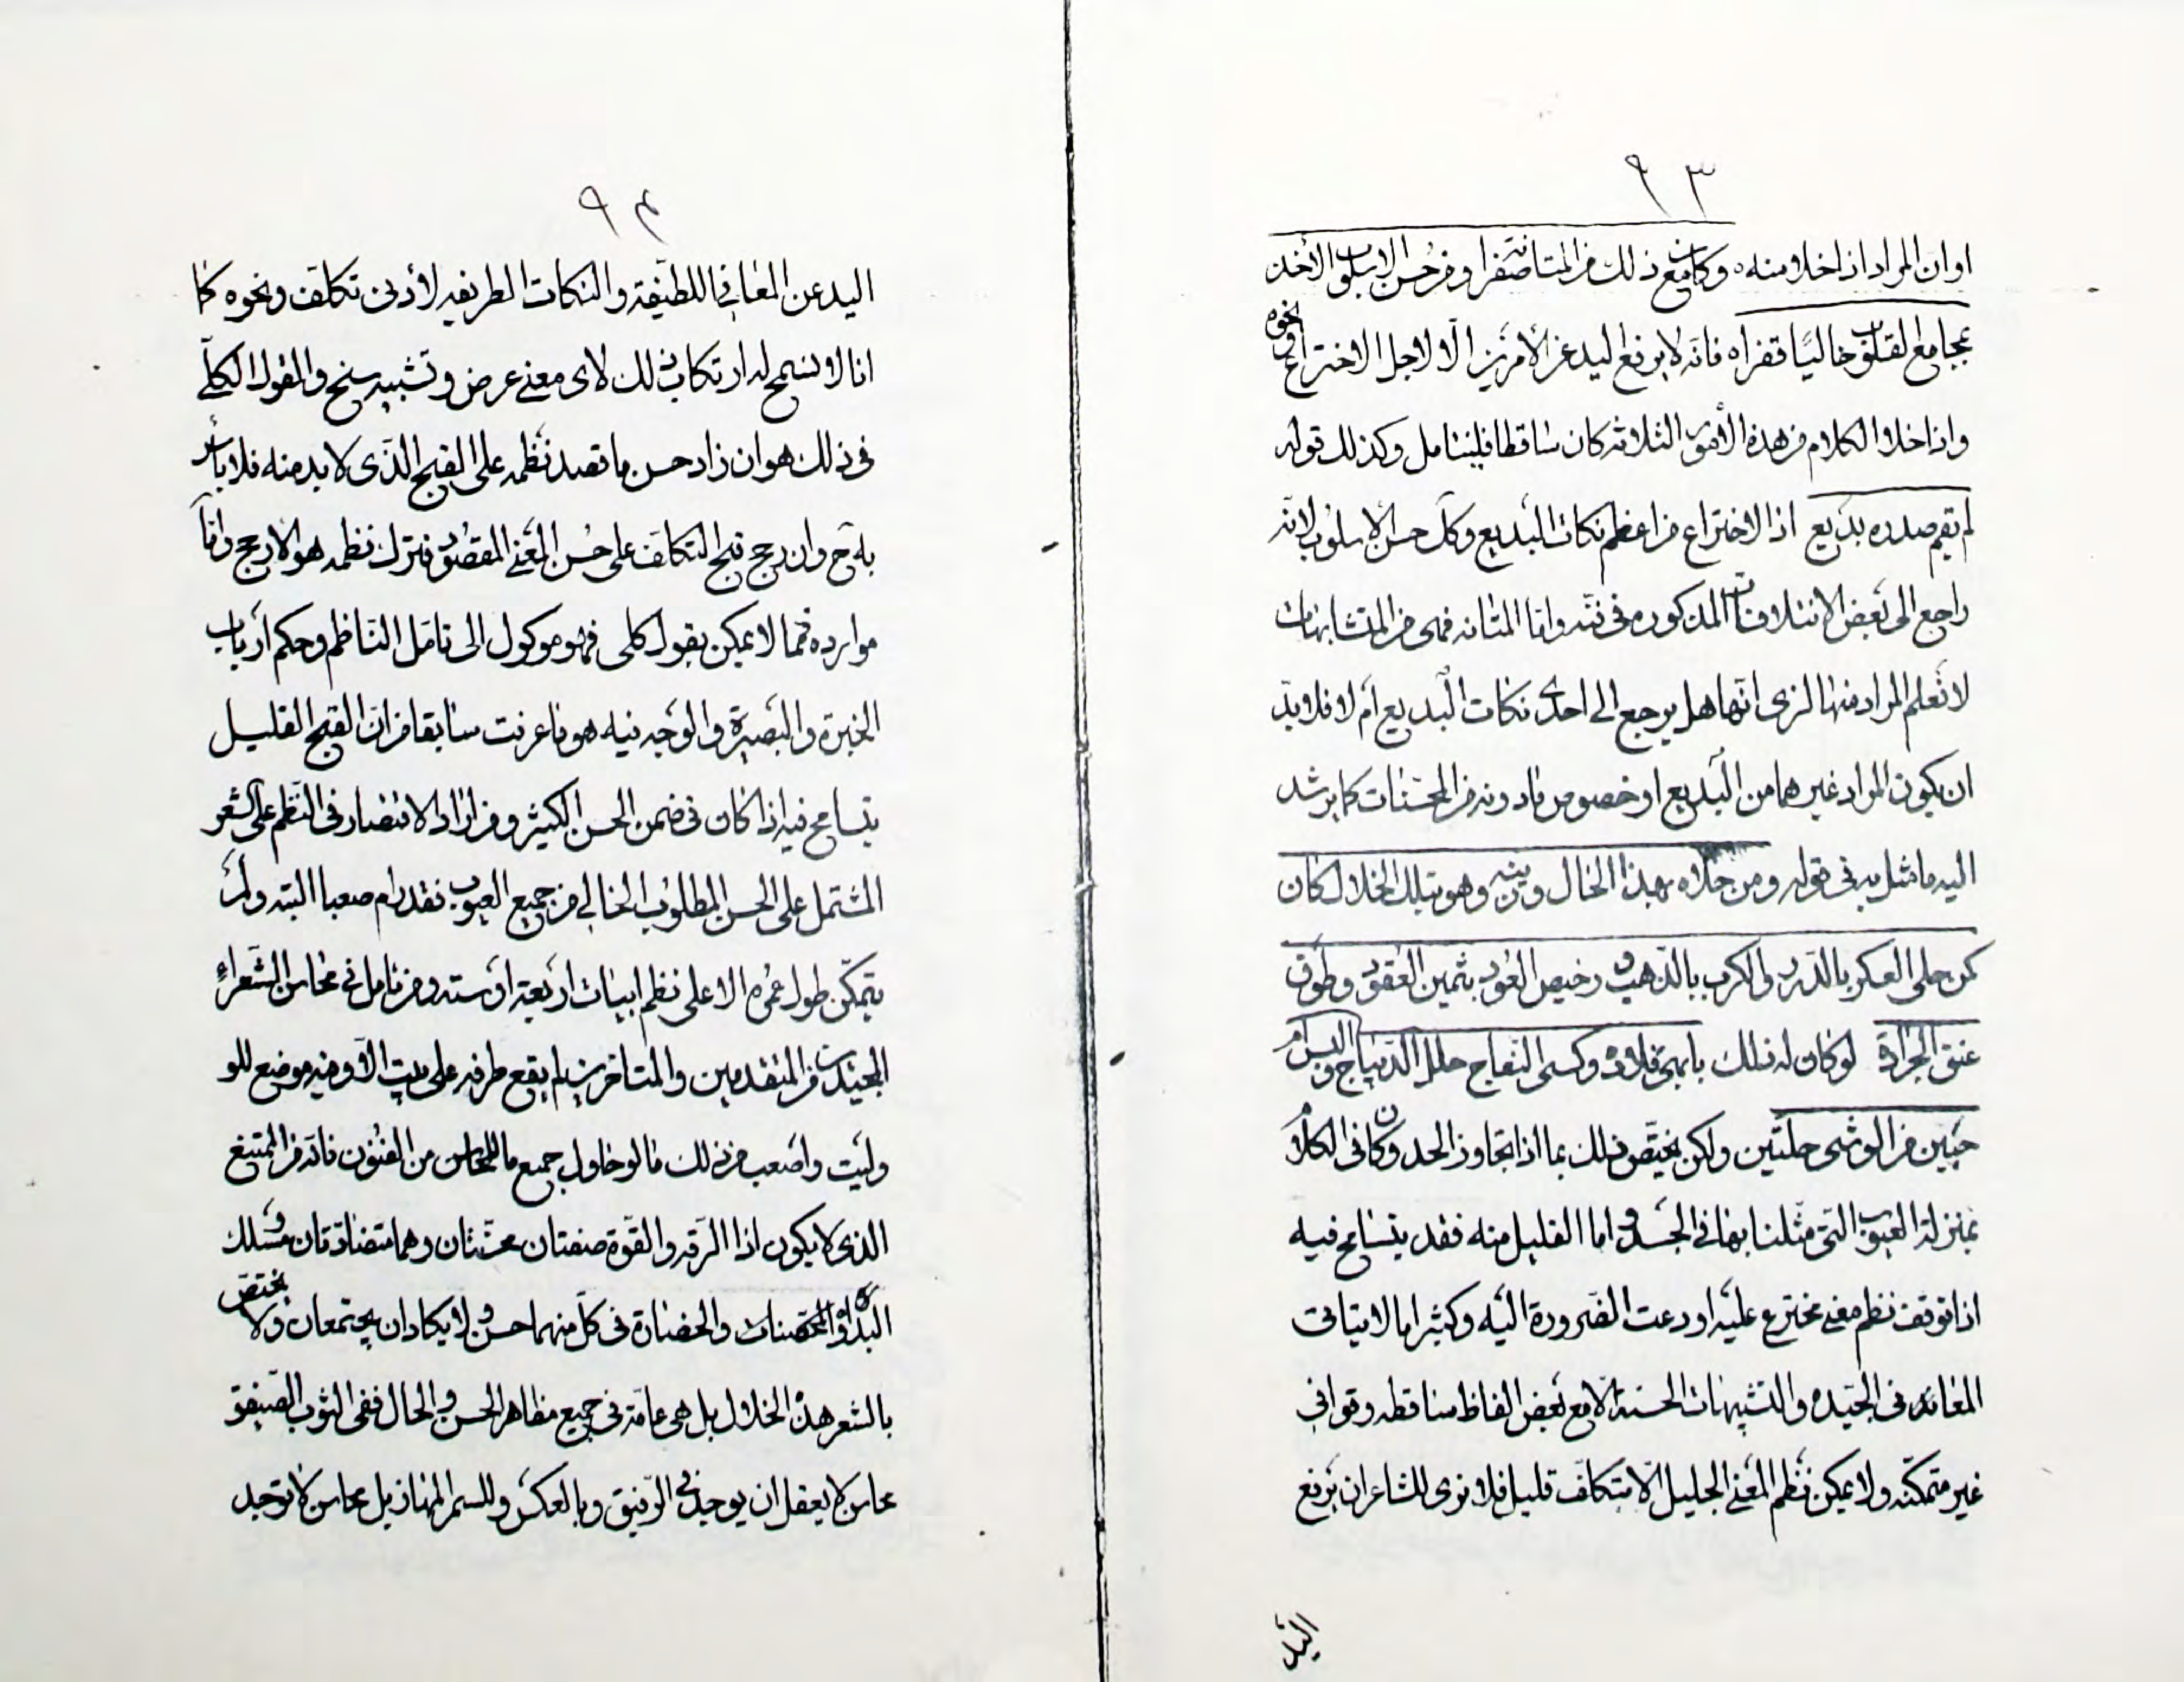 ٩٣
او ان المراد اذا خلا منه وكان مع ذلك من المتانة صفرا ومن حسن الاسلوب الاخذ
بمجامع القلوب خاليا قفرا فانه لا يرفع اليد عن الامرين الا لاجل الاختراع ونحوه
واذا خلا الكلام من هذه الأمور الثلاثه كان ساقطا فليتامل وكذلك قوله
لم يقم صدره بديع اذ الاختراع من اعظم نكات البديع وكل حسن الاسلوب لانه
راجع الى بعض الائتلافات المذكوره فى فنه واما المتانه فهى من المتشابهات
لا نعلم المراد منها لنرى انها هل يرجع الى احدى نكات البديع أم لا فلا بد
ان يكون المراد غيرهما من البديع او خصوص مادونه من المحسنات كما يرشد
اليه ما مثل به فى قوله ومن حلاه بهذا الحال وزينه وهو بتلك الخلال كان
كمن حلى العكر بالدرر والكرب بالذهب ورخيص العود بثمين العقود وطوق
عنق الجرادة لو كان له ذلك بابهى قلادة وكسى النعاج حلل الديباج والبس ام
حبين من الوشى حلتين ولكن يختص ذلك بما اذا تجاوز الحد وكان فى الكلام
بمنزلة العيوب التى مثلنا بها فى الجسد واما القليل منه فقد يتسامح فيه
اذا توقف نظم معنى مخترع عليه او دعت الضرورة اليه وكثيرا ما لا يتاتى
المعانى الجيده والتشبيهات الحسنة الا مع بعض الفاظ ساقطه وقوافى
غير متمكنه ولا يمكن نظم المعنى الجليل الا بتكلف قليل فلا نرى للشاعر ان يرفع
اليد
٩٤
اليد عن المعانى اللطيفة والنكات الطريفه لأدنى تكلف ونحوه كما
انا لا نسمح له ارتكاب ذلك لاى معنى عرض وتشبيه سنح والقول الكلى
فى ذلك هو ان زاد حسن ما قصد نظمه على القبح الذى لا بد منه فلا باس
به ح وان رجح قبح التكلف على حسن المعنى المقصود فترك نظمه هو الارجح واما
موارده فمما لا يمكن بقول كلى فهو موكول الى تامل الناظم وحكم ارباب
الخبرة والبصيرة والوجه فيه هو ما عرفت سابقا من ان القبح القليل
يتسامح فيه اذا كان فى ضمن الحسن الكثير ومن اراد الاقتصار فى النظم على الشعر
المشتمل على الحسن المطلوب الخالى من جميع العيوب فقد رام صعبا البته ولم
يتمكن طول عمره الا على نظم ابيات اربعة او سته ومن تامل فى محاسن الشعراء
المجيدين من المتقدمين والمتاخرين لم يقع طرفه على بيت الا وفيه موضع للو
وليت واصعب من ذلك ما لو حاول جميع ما للمحاسن من الفنون فانه من الممتنع
الذى لا يكون اذا الرقه والقوة صفتان محسنتان وهما متضادتان ومسلك
البداوة والحضارة فى كل منهما حسن ولا يكادان يجتمعان ولا يختص
بالشعر هذه الخلال بل هى عامة فى جميع مظاهر الحسن والجمال ففى الثوب الصفيق
محاسن لا يعقل ان يوجد فى الرقيق وبالعكس وللسمر المهازيل محاسن لا توجد